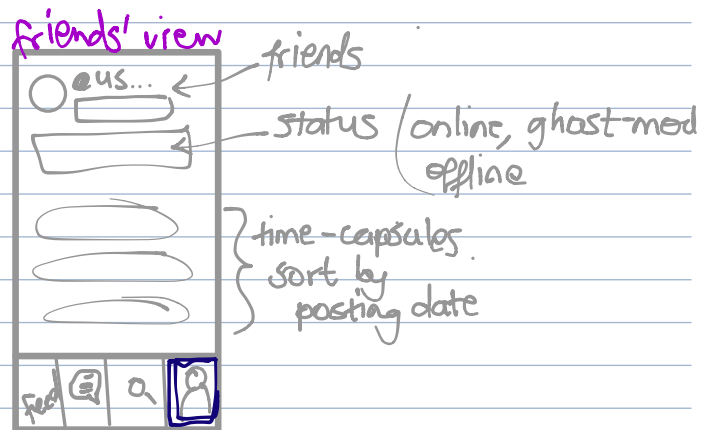 friends' view
@us...
friends
status (online, ghost-mod
offline
time-capsules
sort by
posting date
feed